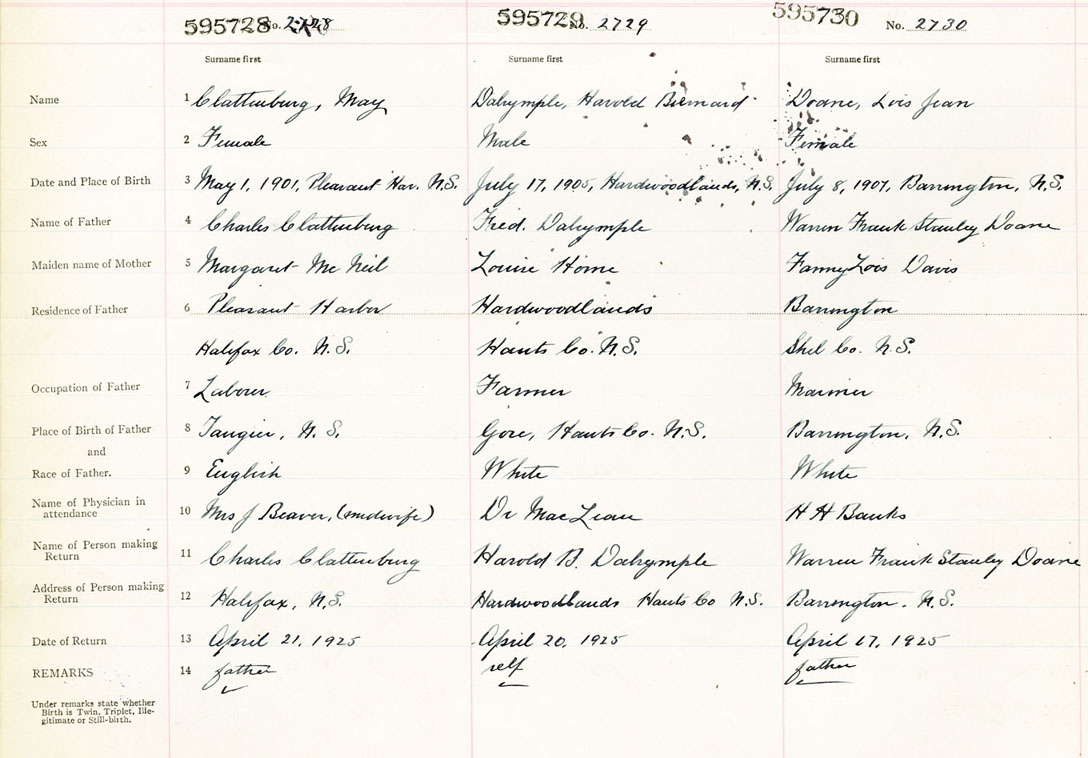 595728 No. 2728
595729 No. 2729
595730 No. 2730
Surname first Surname first Surname first
Name 1 Clattenburg, May Dalrymple, Harold Bernard Doane, Lois Jean
Sex 2 Female Male Female
Date and Place of Birth 3 May 1, 1901, Pleasant Har. N.S. July 17, 1905, Hardwoodlands, N.S. July 8, 1907, Barrington, N.S.
Name of Father 4 Charles Clattenburg Fred. Dalrymple Warren Frank Stanley Doane
Maiden name of Mother 5 Margaret McNeil Louise Horne Fanny Lois Davis
Residence of Father 6 Pleasant Harbor Hardwoodlands Barrington
Halifax Co. N.S. Hants Co. N.S. Shel Co. N.S.
Occupation of Father 7 Laborer Farmer Mariner
Place of Birth of Father 8 Tangier, N.S. Gore, Hants Co. N.S. Barrington, N.S.
and
Race of Father. 9 English White White
Name of Physician in
attendance 10 Mrs J Beaver, (midwife) Dr MacLean H H Banks
Name of Person making
Return 11 Charles Clattenburg Harold B. Dalrymple Warren Frank Stanley Doane
Address of Person making
Return 12 Halifax, N.S. Hardwoodlands Hants Co N.S. Barrington. N.S.
Date of Return 13 April 21, 1925 April 20, 1925 April 17, 1925
REMARKS 14 father self father
Under remarks state whether
Birth is Twin, Triplet, Ille-
gitimate or Still-birth.